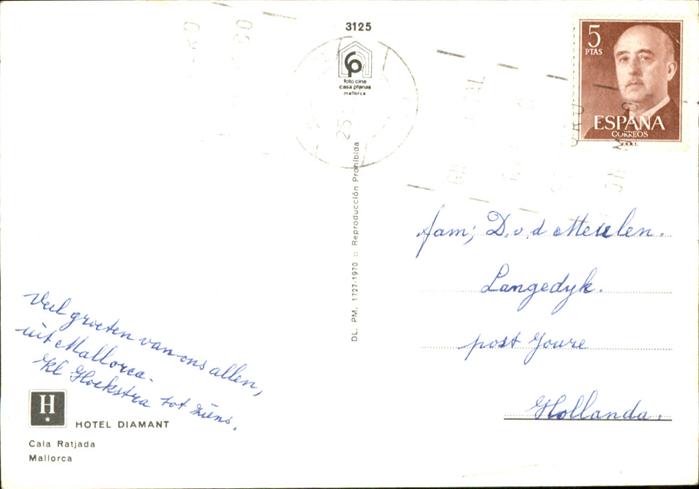 3125
foto cine
casa planas
mallorca
5
PTAS
ESPAÑA
CORREOS
DL. PM. 1727-1970 :: Reproducción Prohibida
fam; D. v. d Meulen.
Langedyk.
post Joure
Hollanda.
Veel groeten van ons allen,
uit Mallorca.
Kl Hoekstra tot ziens.
H
HOTEL DIAMANT
Cala Ratjada
Mallorca